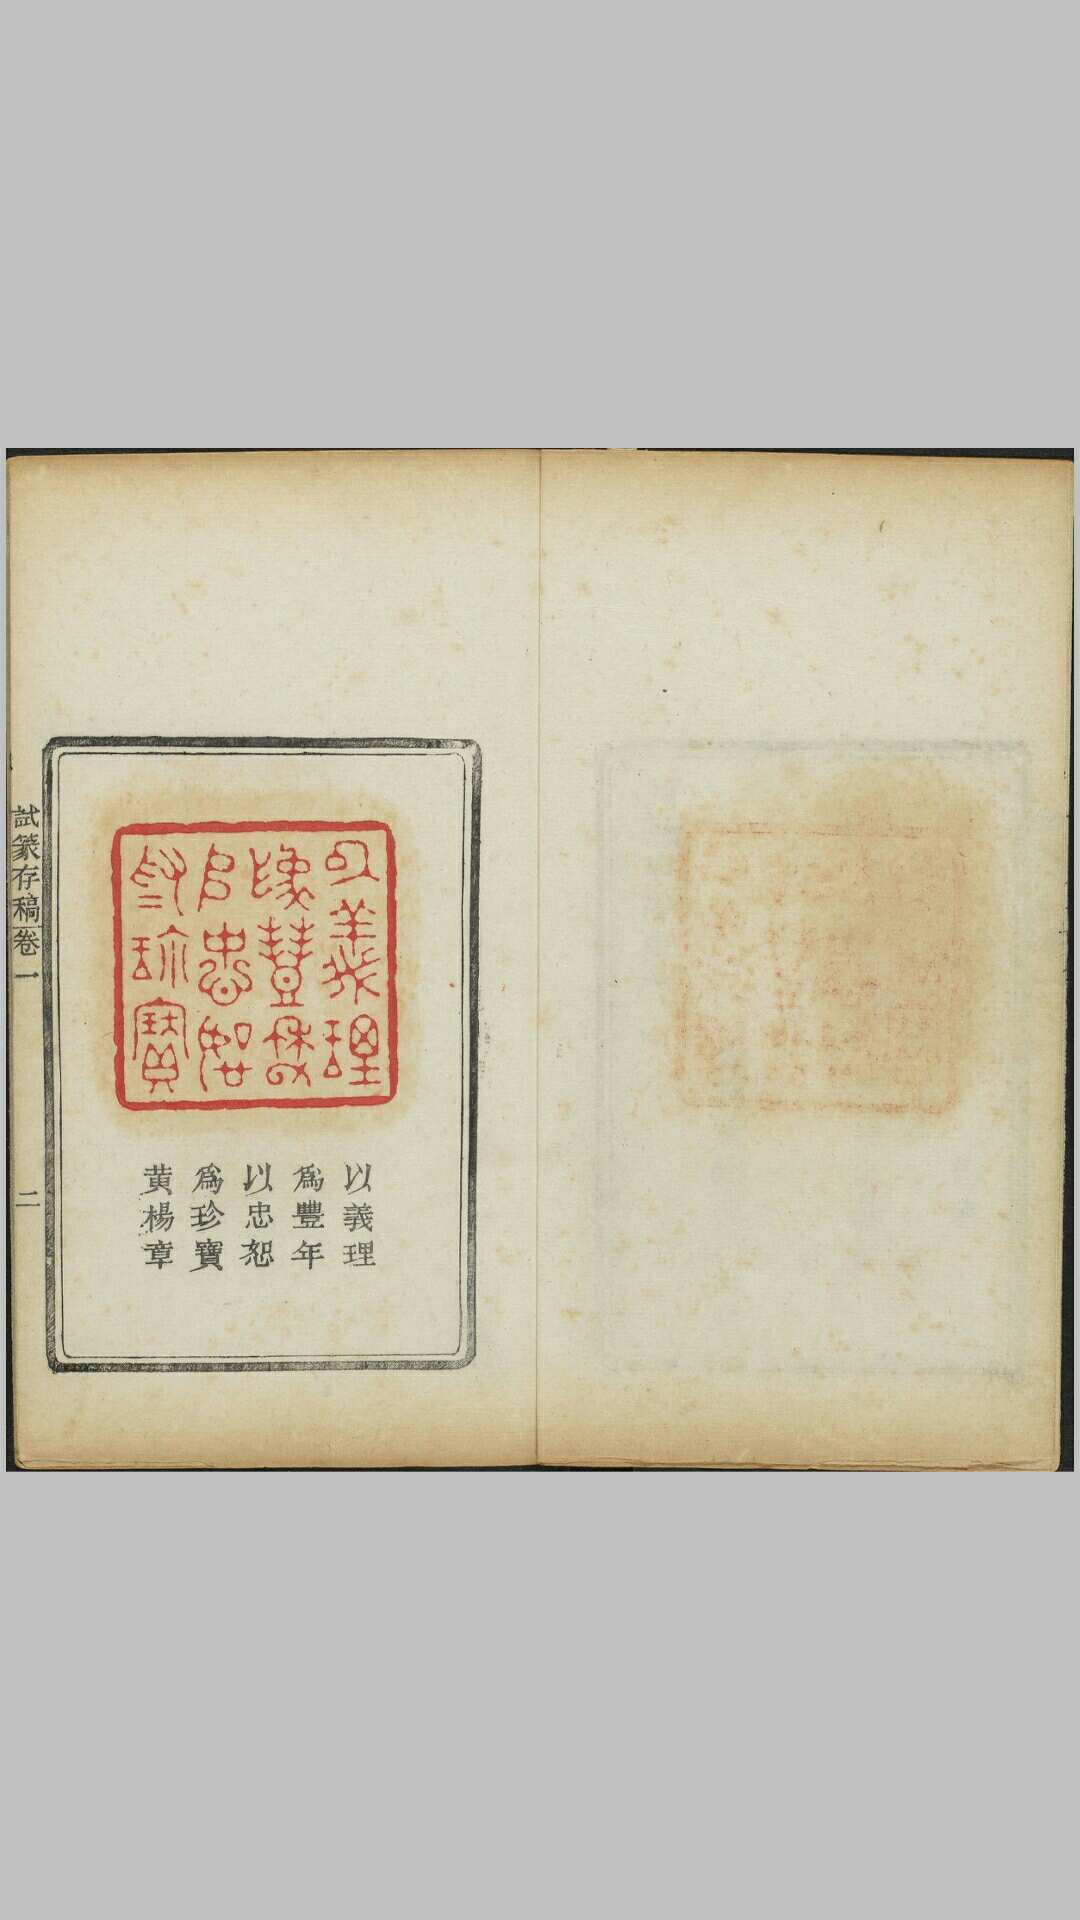 以義理
為豐年
以忠恕
為珍寶
以義理
為豐年
以忠恕
為珍寶
黄楊章
試篆存稿卷一
二